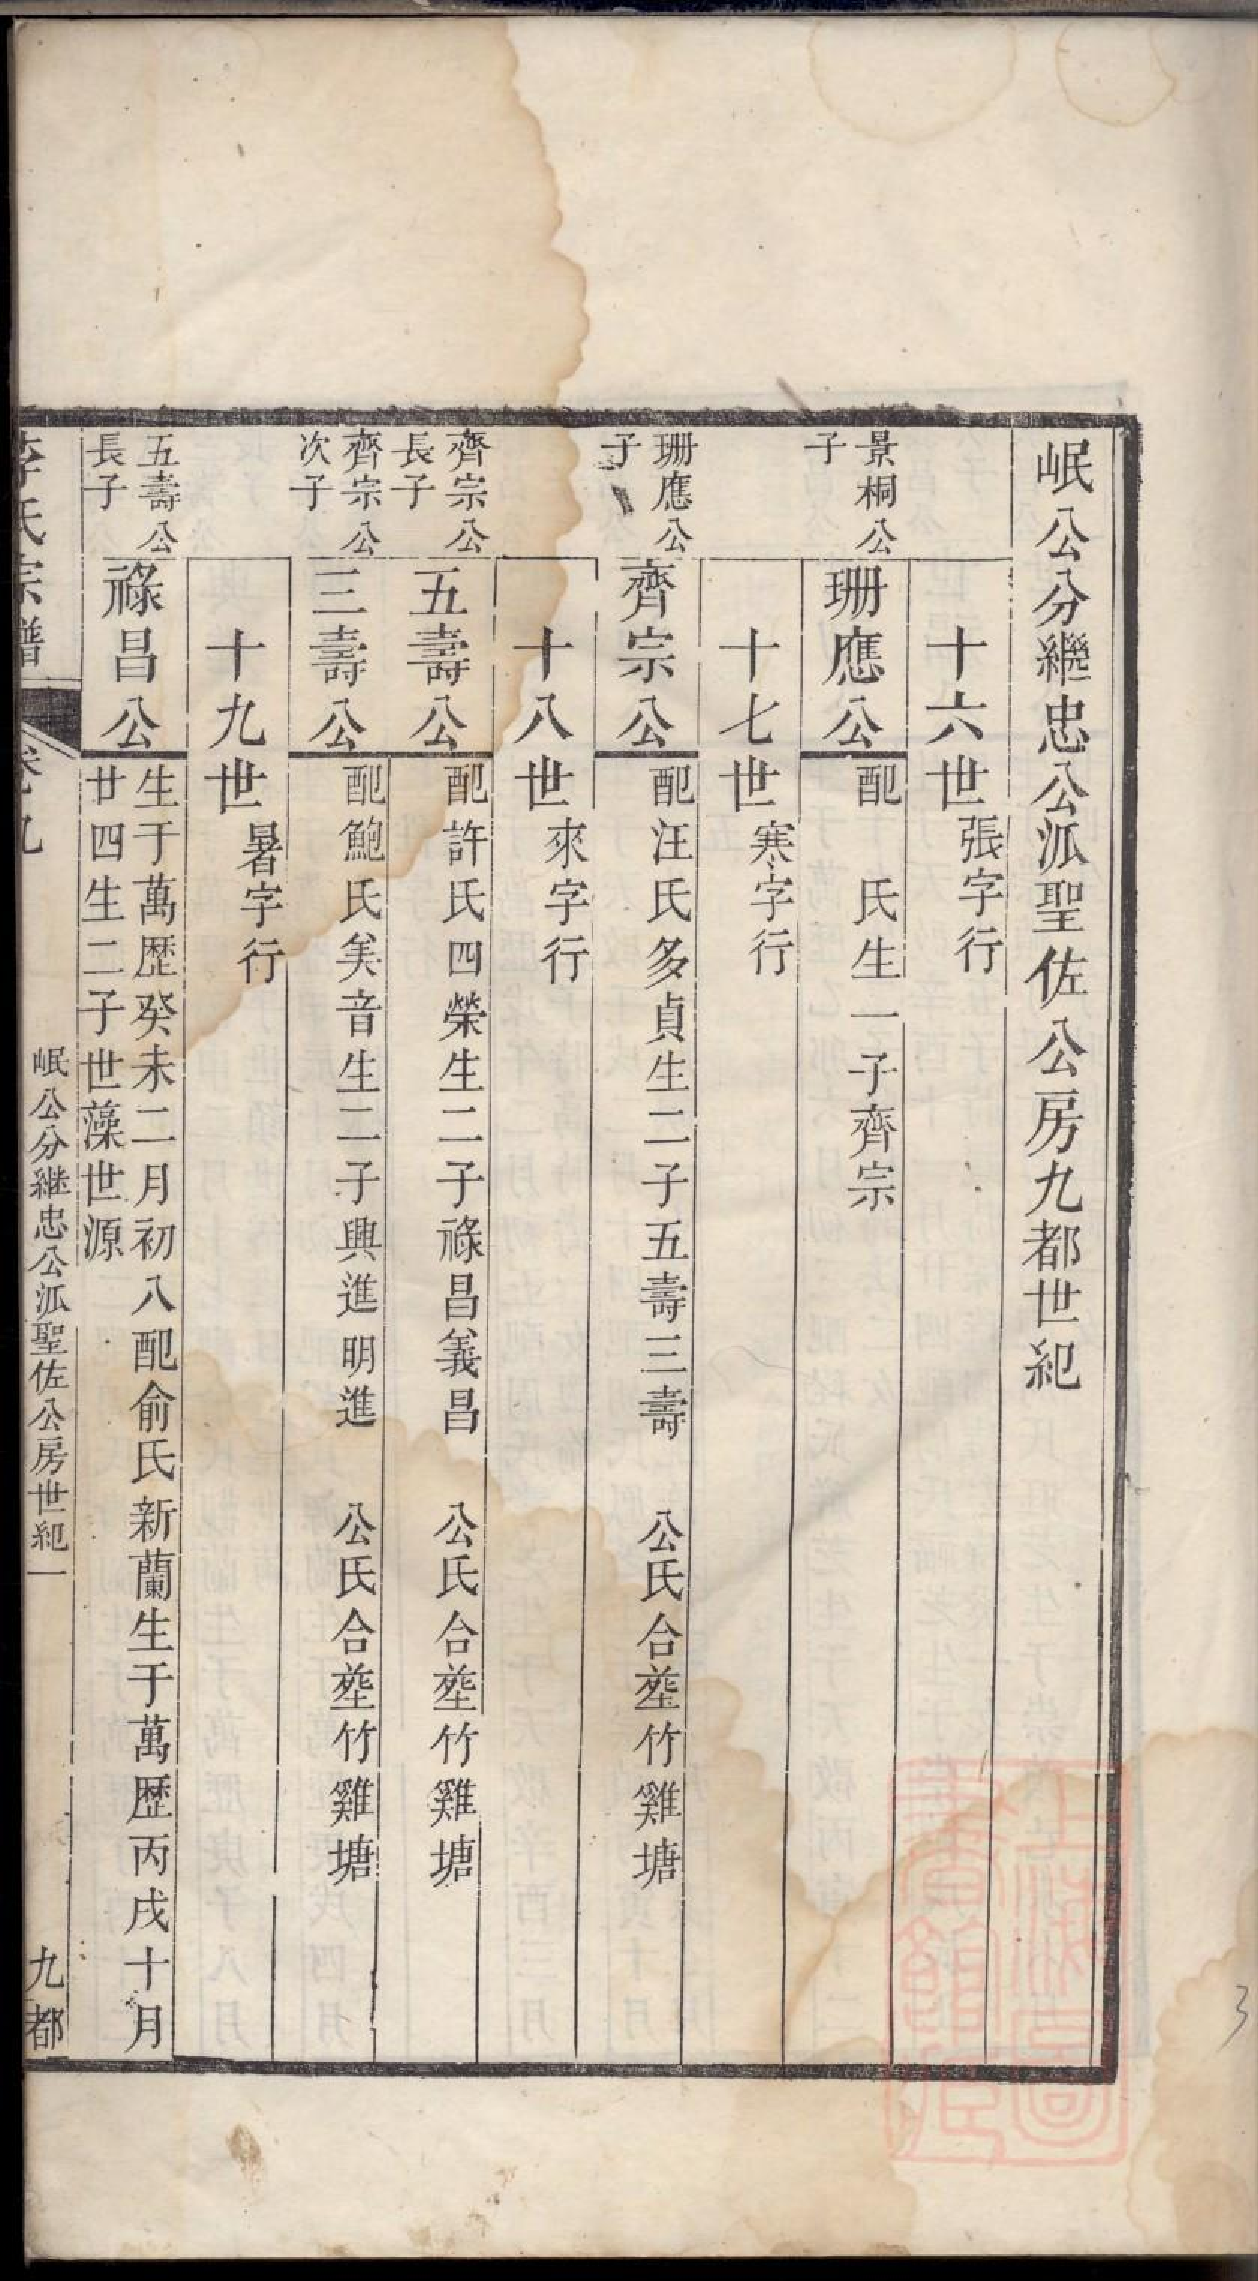 岷公分繼忠公泒聖佐公房九都世紀
十六世張字行
景桐公
子
珊應公
配　氏生一子齊宗
十七世寒字行
珊應公
子
齊宗公
配汪氏多貞生二子五壽三壽　公氏合塟竹雞塘
十八世來字行
齊宗公
長子
五壽公
配許氏四榮生二子祿昌義昌　公氏合塟竹雞塘
齊宗公
次子
三壽公
配鮑氏美音生二子興進明進　公氏合塟竹雞塘
十九世暑字行
五壽公
長子
祿昌公
生于萬歷癸未二月初八配俞氏新蘭生于萬歷丙戌十月
廿四生二子世藻世源
李氏宗譜
卷九
岷公分継忠公泒聖佐公房世紀一
九都
3